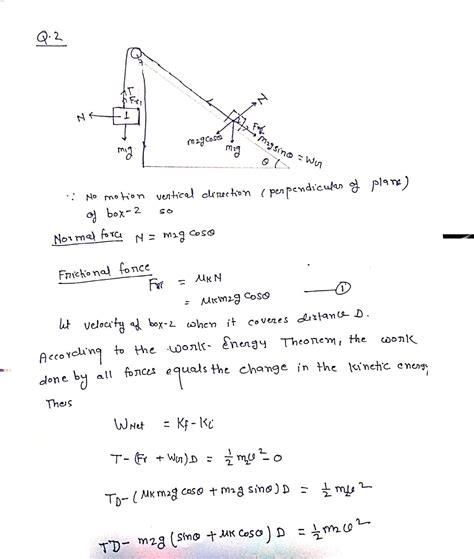 Q.2
T
Fr1
N
1
m1g
N
Fr2
m2gcosθ
m2g
m2gsinθ = W(1)
θ
∵ No motion vertical direction (perpendicular of plane)
of box-2 so
Normal force N = m2g cosθ
Frictional force
Fr = μkN
= μkm2g cosθ ——①
let velocity of box-2 when it coveres distance D.
According to the work-Energy Theorem, the work
done by all forces equals the change in the kinetic energy
Thus
WNet = Kf - Ki
T-(Fr + W(1))D = 1/2 m2v² - 0
TD-(μkm2g cosθ + m2g sinθ)D = 1/2 m2v²
TD- m2g (sinθ + μk cosθ) D = 1/2 m2v²